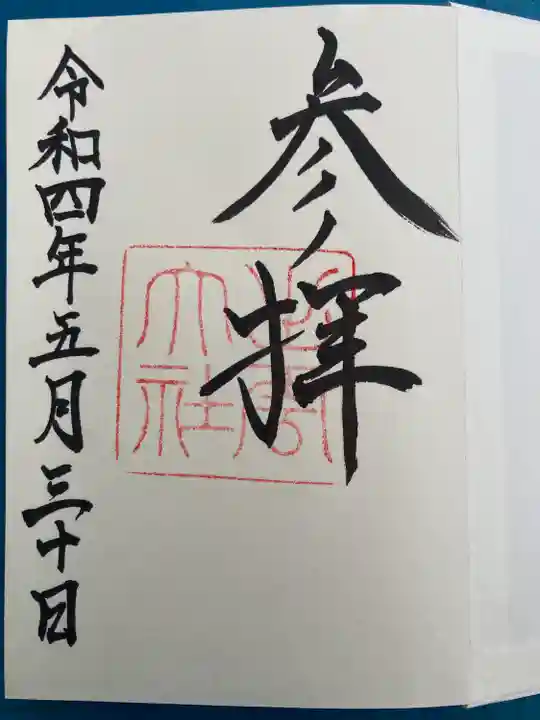 参拝
出雲
大社
令和四年五月三十日